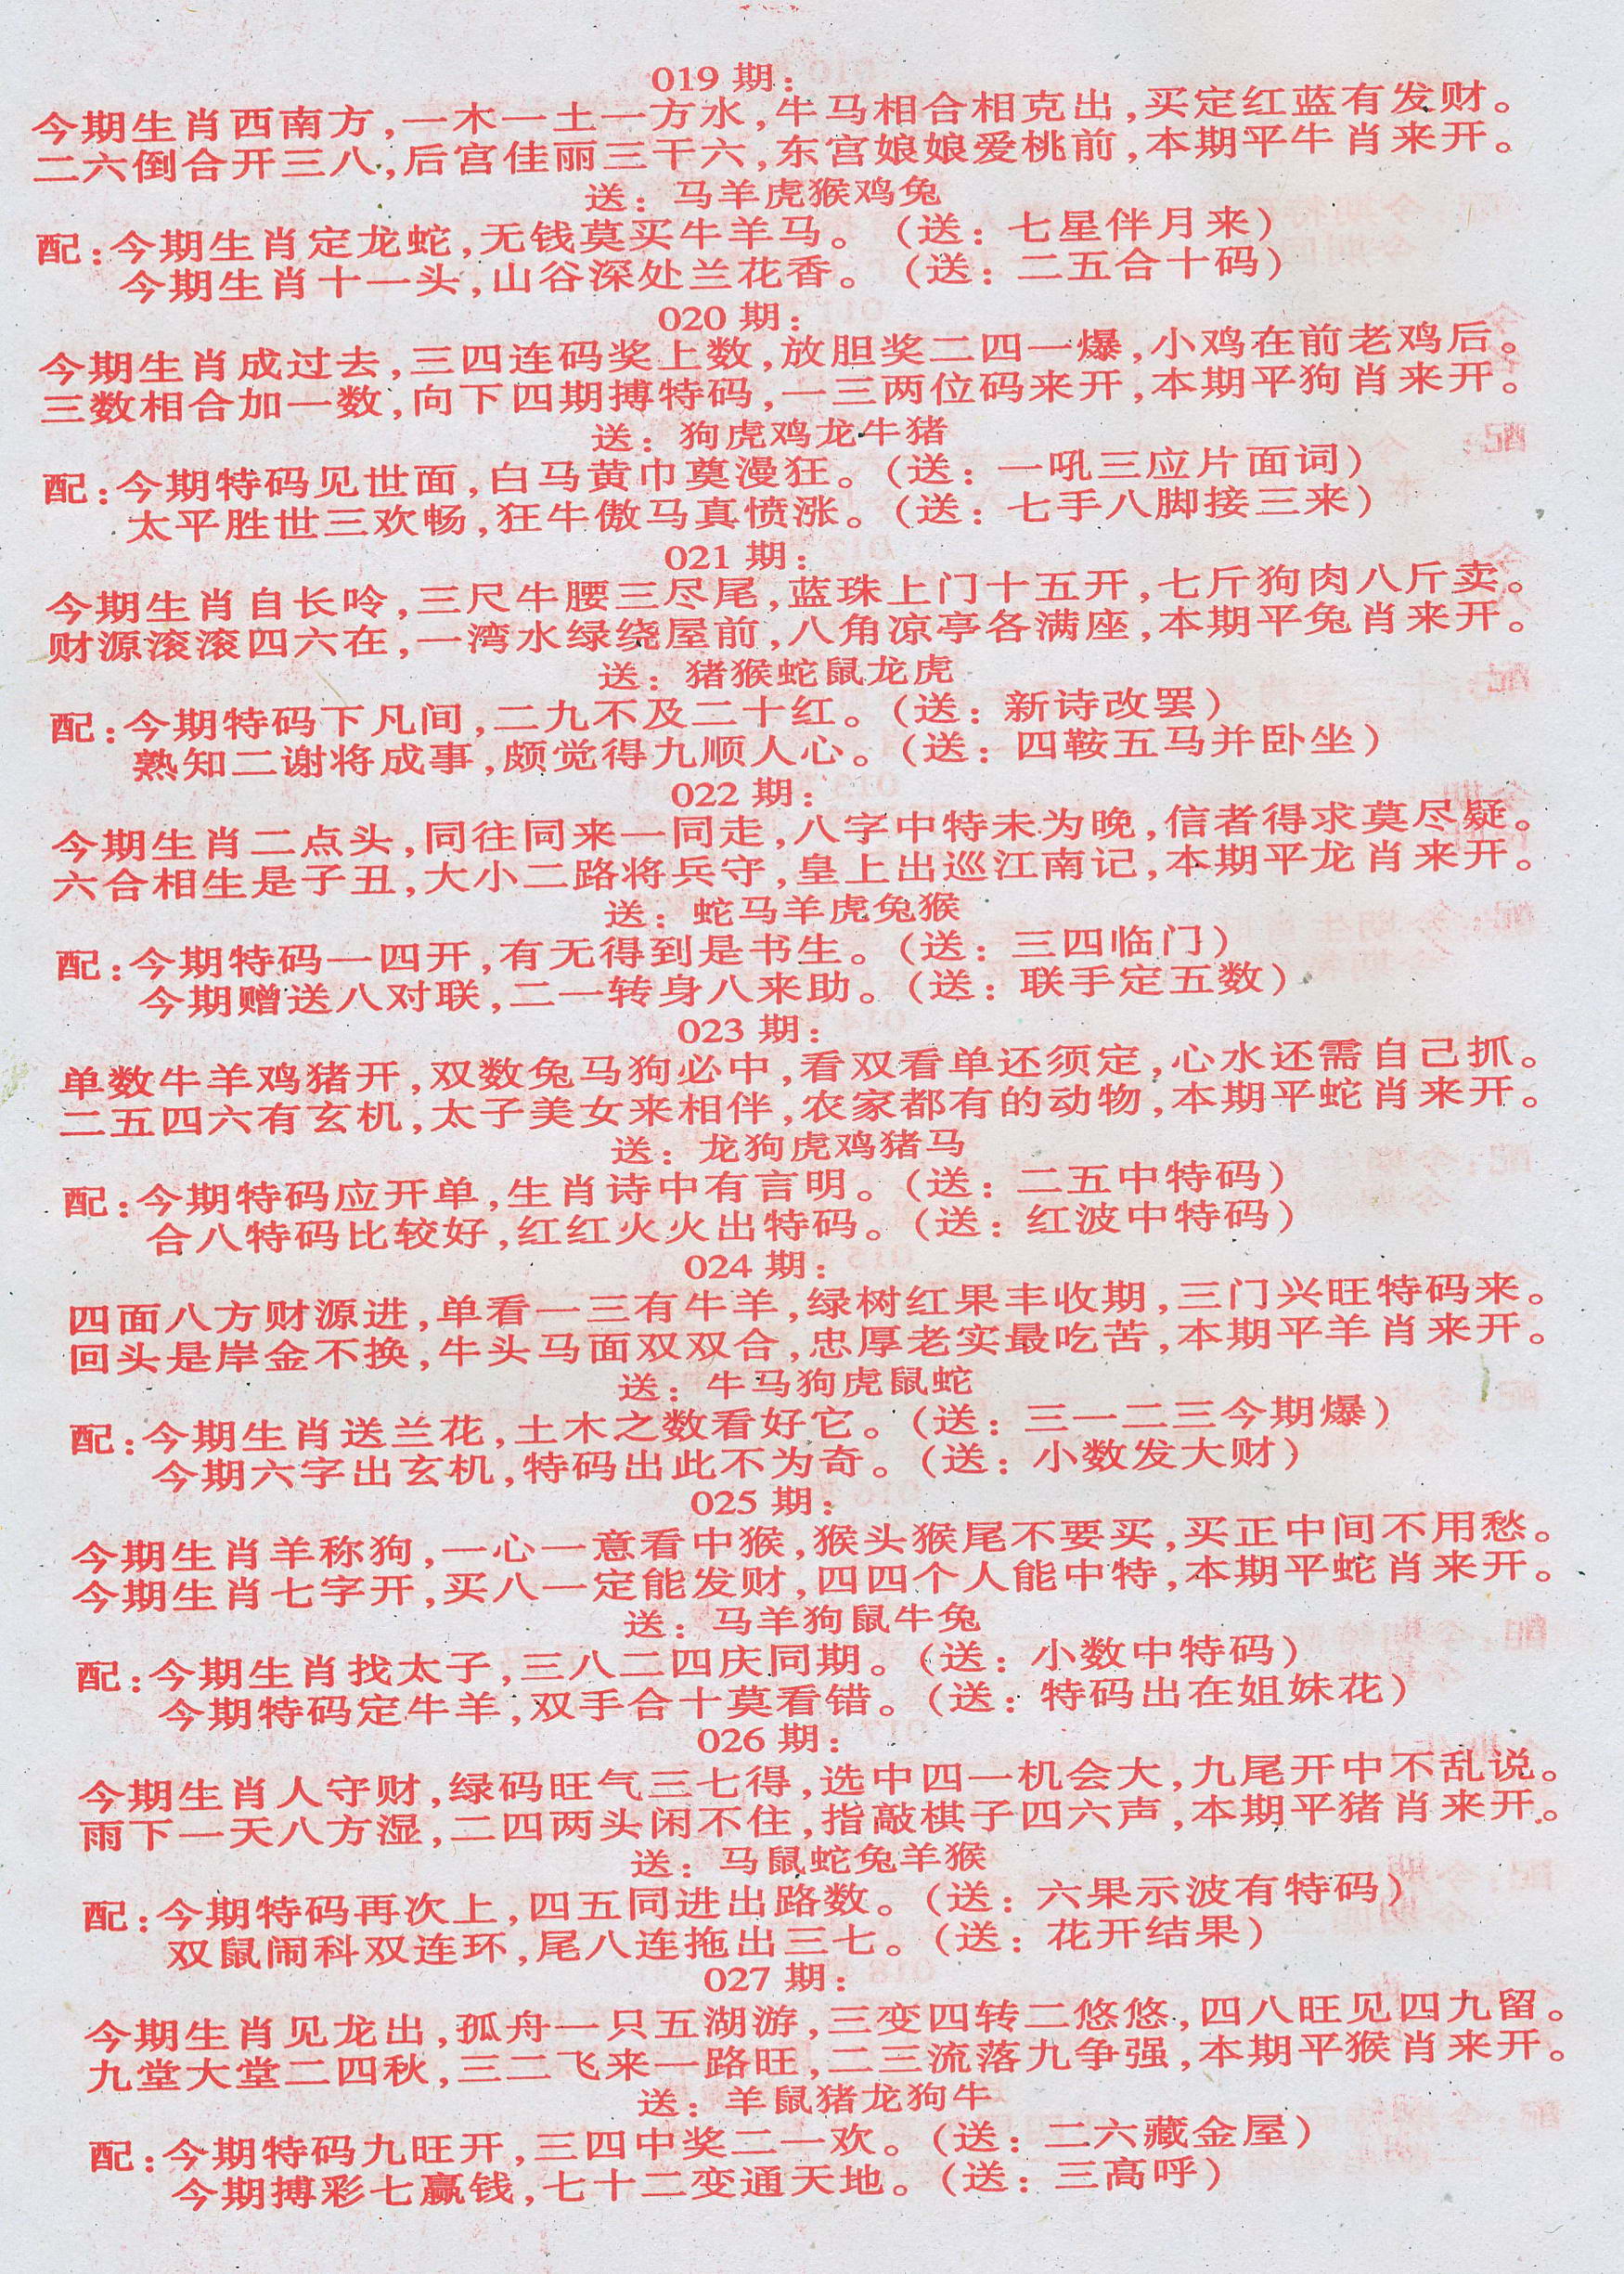 019 期：
今期生肖西南方，一木一土一方水，牛马相合相克出，买定红蓝有发财。
二六倒合开三八，后宫佳丽三千六，东宫娘娘爱桃前，本期平牛肖来开。
送：马羊虎猴鸡兔
配：今期生肖定龙蛇，无钱莫买牛羊马。（送：七星伴月来）
今期生肖十一头，山谷深处兰花香。（送：二五合十码）
020 期：
今期生肖成过去，三四连码奖上数，放胆奖二四一爆，小鸡在前老鸡后。
三数相合加一数，向下四期搏特码，一三两位码来开，本期平狗肖来开。
送：狗虎鸡龙牛猪
配：今期特码见世面，白马黄巾奠漫狂。（送：一吼三应片面词）
太平胜世三欢畅，狂牛傲马真愤涨。（送：七手八脚接三来）
021 期：
今期生肖自长呤，三尺牛腰三尽尾，蓝珠上门十五开，七斤狗肉八斤卖。
财源滚滚四六在，一湾水绿绕屋前，八角凉亭各满座，本期平兔肖来开。
送：猪猴蛇鼠龙虎
配：今期特码下凡间，二九不及二十红。（送：新诗改罢）
熟知二谢将成事，颇觉得九顺人心。（送：四鞍五马并卧坐）
022 期：
今期生肖二点头，同往同来一同走，八字中特未为晚，信者得求莫尽疑。
六合相生是子丑，大小二路将兵守，皇上出巡江南记，本期平龙肖来开。
送：蛇马羊虎兔猴
配：今期特码一四开，有无得到是书生。（送：三四临门）
今期赠送八对联，二一转身八来助。（送：联手定五数）
023 期：
单数牛羊鸡猪开，双数兔马狗必中，看双看单还须定，心水还需自己抓。
二五四六有玄机，太子美女来相伴，农家都有的动物，本期平蛇肖来开。
送：龙狗虎鸡猪马
配：今期特码应开单，生肖诗中有言明。（送：二五中特码）
合八特码比较好，红红火火出特码。（送：红波中特码）
024 期：
四面八方财源进，单看一三有牛羊，绿树红果丰收期，三门兴旺特码来。
回头是岸金不换，牛头马面双双合，忠厚老实最吃苦，本期平羊肖来开。
送：牛马狗虎鼠蛇
配：今期生肖送兰花，土木之数看好它。（送：三一二三今期爆）
今期六字出玄机，特码出此不为奇。（送：小数发大财）
025 期：
今期生肖羊称狗，一心一意看中猴，猴头猴尾不要买，买正中间不用愁。
今期生肖七字开，买八一定能发财，四四个人能中特，本期平蛇肖来开。
送：马羊狗鼠牛兔
配：今期生肖找太子，三八二四庆同期。（送：小数中特码）
今期特码定牛羊，双手合十莫看错。（送：特码出在姐妹花）
026 期：
今期生肖人守财，绿码旺气三七得，选中四一机会大，九尾开中不乱说。
雨下一天八方湿，二四两头闲不住，指敲棋子四六声，本期平猪肖来开。
送：马鼠蛇兔羊猴
配：今期特码再次上，四五同进出路数。（送：六果示波有特码）
双鼠闹科双连环，尾八连拖出三七。（送：花开结果）
027 期：
今期生肖见龙出，孤舟一只五湖游，三变四转二悠悠，四八旺见四九留。
九堂大堂二四秋，三二飞来一路旺，二三流落九争强，本期平猴肖来开。
送：羊鼠猪龙狗牛
配：今期特码九旺开，三四中奖二一欢。（送：二六藏金屋）
今期搏彩七赢钱，七十二变通天地。（送：三高呼）